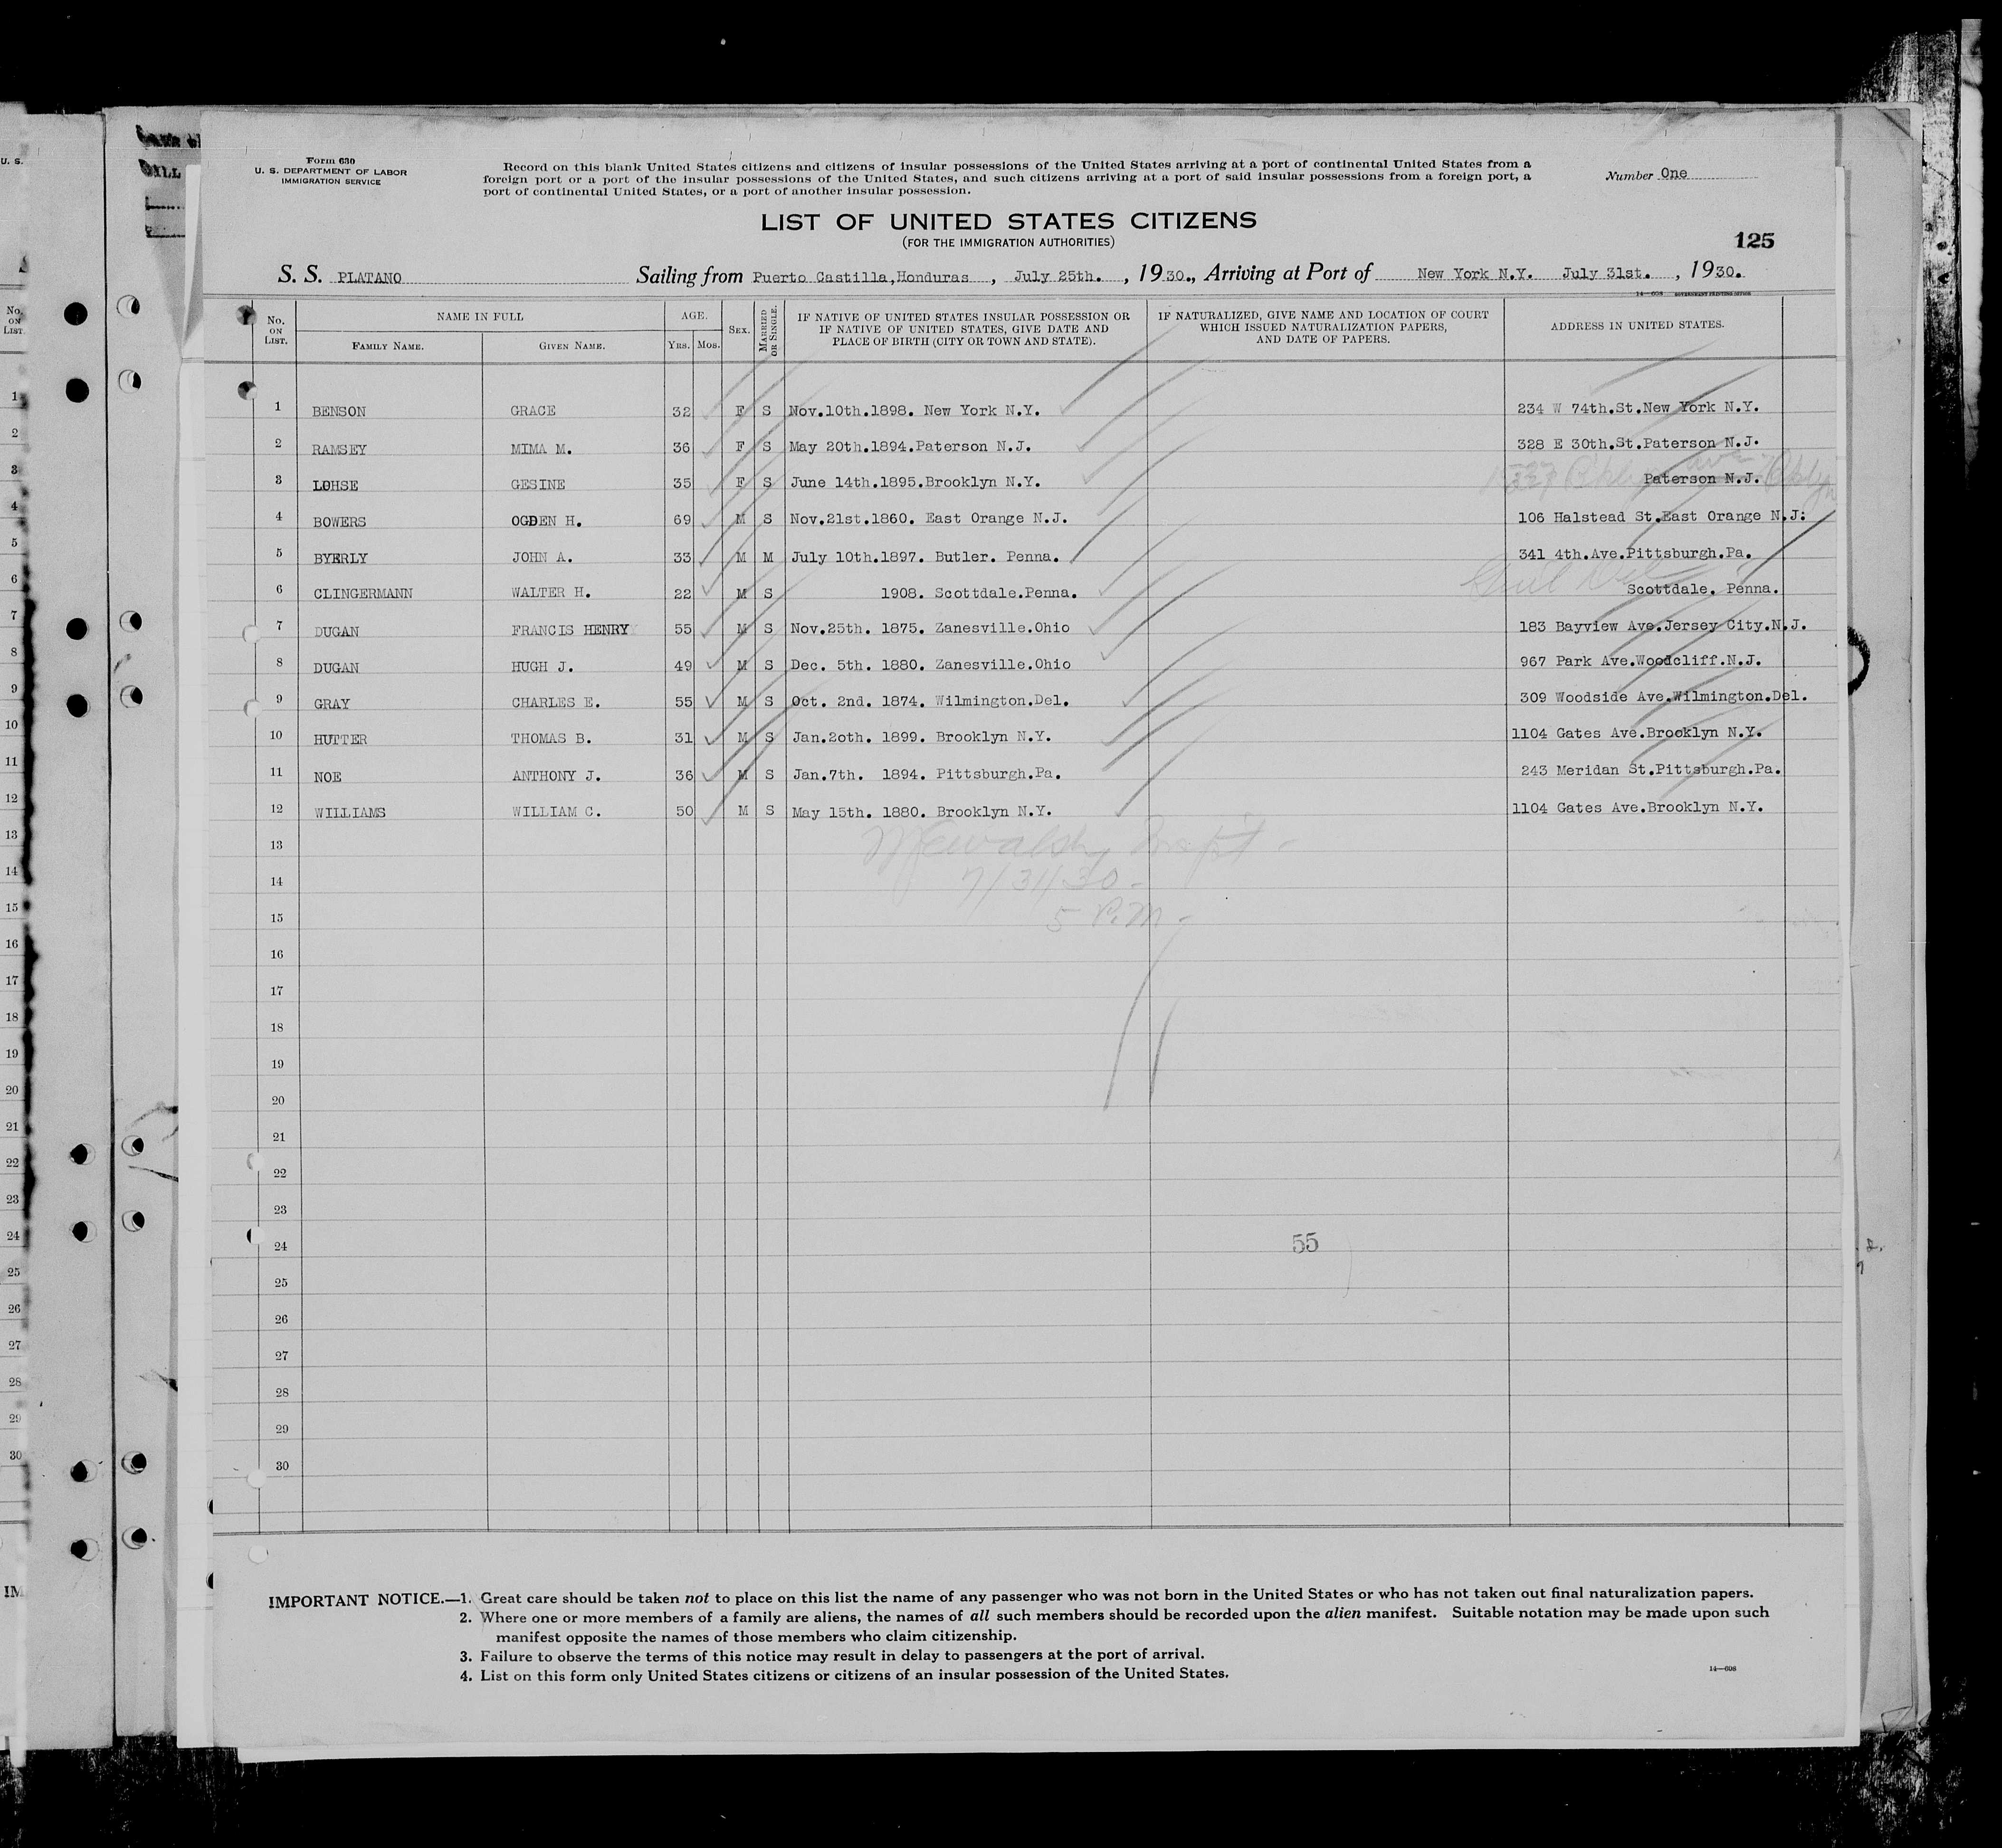 Form 630
U. S. DEPARTMENT OF LABOR
IMMIGRATION SERVICE
Record on this blank United States citizens and citizens of insular possessions of the United States arriving at a port of continental United States from a
foreign port or a port of the insular possessions of the United States, and such citizens arriving at a port of said insular possessions from a foreign port, a
port of continental United States, or a port of another insular possession.
Number One
LIST OF UNITED STATES CITIZENS
(FOR THE IMMIGRATION AUTHORITIES)
125
S. S. PLATANO Sailing from Puerto Castilla,Honduras , July 25th. , 1930., Arriving at Port of New York N.Y. July 31st. , 1930.
14—608 GOVERNMENT PRINTING OFFICE
No. ON LIST. NAME IN FULL AGE. SEX. MARRIED OR SINGLE. IF NATIVE OF UNITED STATES INSULAR POSSESSION OR IF NATIVE OF UNITED STATES, GIVE DATE AND PLACE OF BIRTH (CITY OR TOWN AND STATE). IF NATURALIZED, GIVE NAME AND LOCATION OF COURT WHICH ISSUED NATURALIZATION PAPERS, AND DATE OF PAPERS. ADDRESS IN UNITED STATES.
FAMILY NAME. GIVEN NAME. YRS. MOS.
1 BENSON GRACE 32 F S Nov.10th.1898. New York N.Y. 234 W 74th.St.New York N.Y.
2 RAMSEY MIMA M. 36 F S May 20th.1894.Paterson N.J. 328 E 30th.St.Paterson N.J.
3 LOHSE GESINE 35 F S June 14th.1895.Brooklyn N.Y. Paterson N.J.
4 BOWERS OGDEN H. 69 M S Nov.21st.1860. East Orange N.J. 106 Halstead St.East Orange N.J.
5 BYERLY JOHN A. 33 M M July 10th.1897. Butler. Penna. 341 4th.Ave.Pittsburgh.Pa.
6 CLINGERMANN WALTER H. 22 M S 1908. Scottdale.Penna. Scottdale. Penna.
7 DUGAN FRANCIS HENRY 55 M S Nov.25th. 1875. Zanesville.Ohio 183 Bayview Ave.Jersey City.N.J.
8 DUGAN HUGH J. 49 M S Dec. 5th. 1880. Zanesville.Ohio 967 Park Ave.Woodcliff.N.J.
9 GRAY CHARLES E. 55 M S Oct. 2nd. 1874. Wilmington.Del. 309 Woodside Ave.Wilmington.Del.
10 HUTTER THOMAS B. 31 M S Jan.2oth. 1899. Brooklyn N.Y. 1104 Gates Ave.Brooklyn N.Y.
11 NOE ANTHONY J. 36 M S Jan.7th. 1894. Pittsburgh.Pa. 243 Meridan St.Pittsburgh.Pa.
12 WILLIAMS WILLIAM C. 50 M S May 15th. 1880. Brooklyn N.Y. 1104 Gates Ave.Brooklyn N.Y.
13
14 7/31/30-
15 5 P.M-
16
17
18
19
20
21
22
23
24 55
25
26
27
28
29
30
IMPORTANT NOTICE.—1. Great care should be taken not to place on this list the name of any passenger who was not born in the United States or who has not taken out final naturalization papers.
2. Where one or more members of a family are aliens, the names of all such members should be recorded upon the alien manifest. Suitable notation may be made upon such
manifest opposite the names of those members who claim citizenship.
3. Failure to observe the terms of this notice may result in delay to passengers at the port of arrival.
4. List on this form only United States citizens or citizens of an insular possession of the United States.
14—608